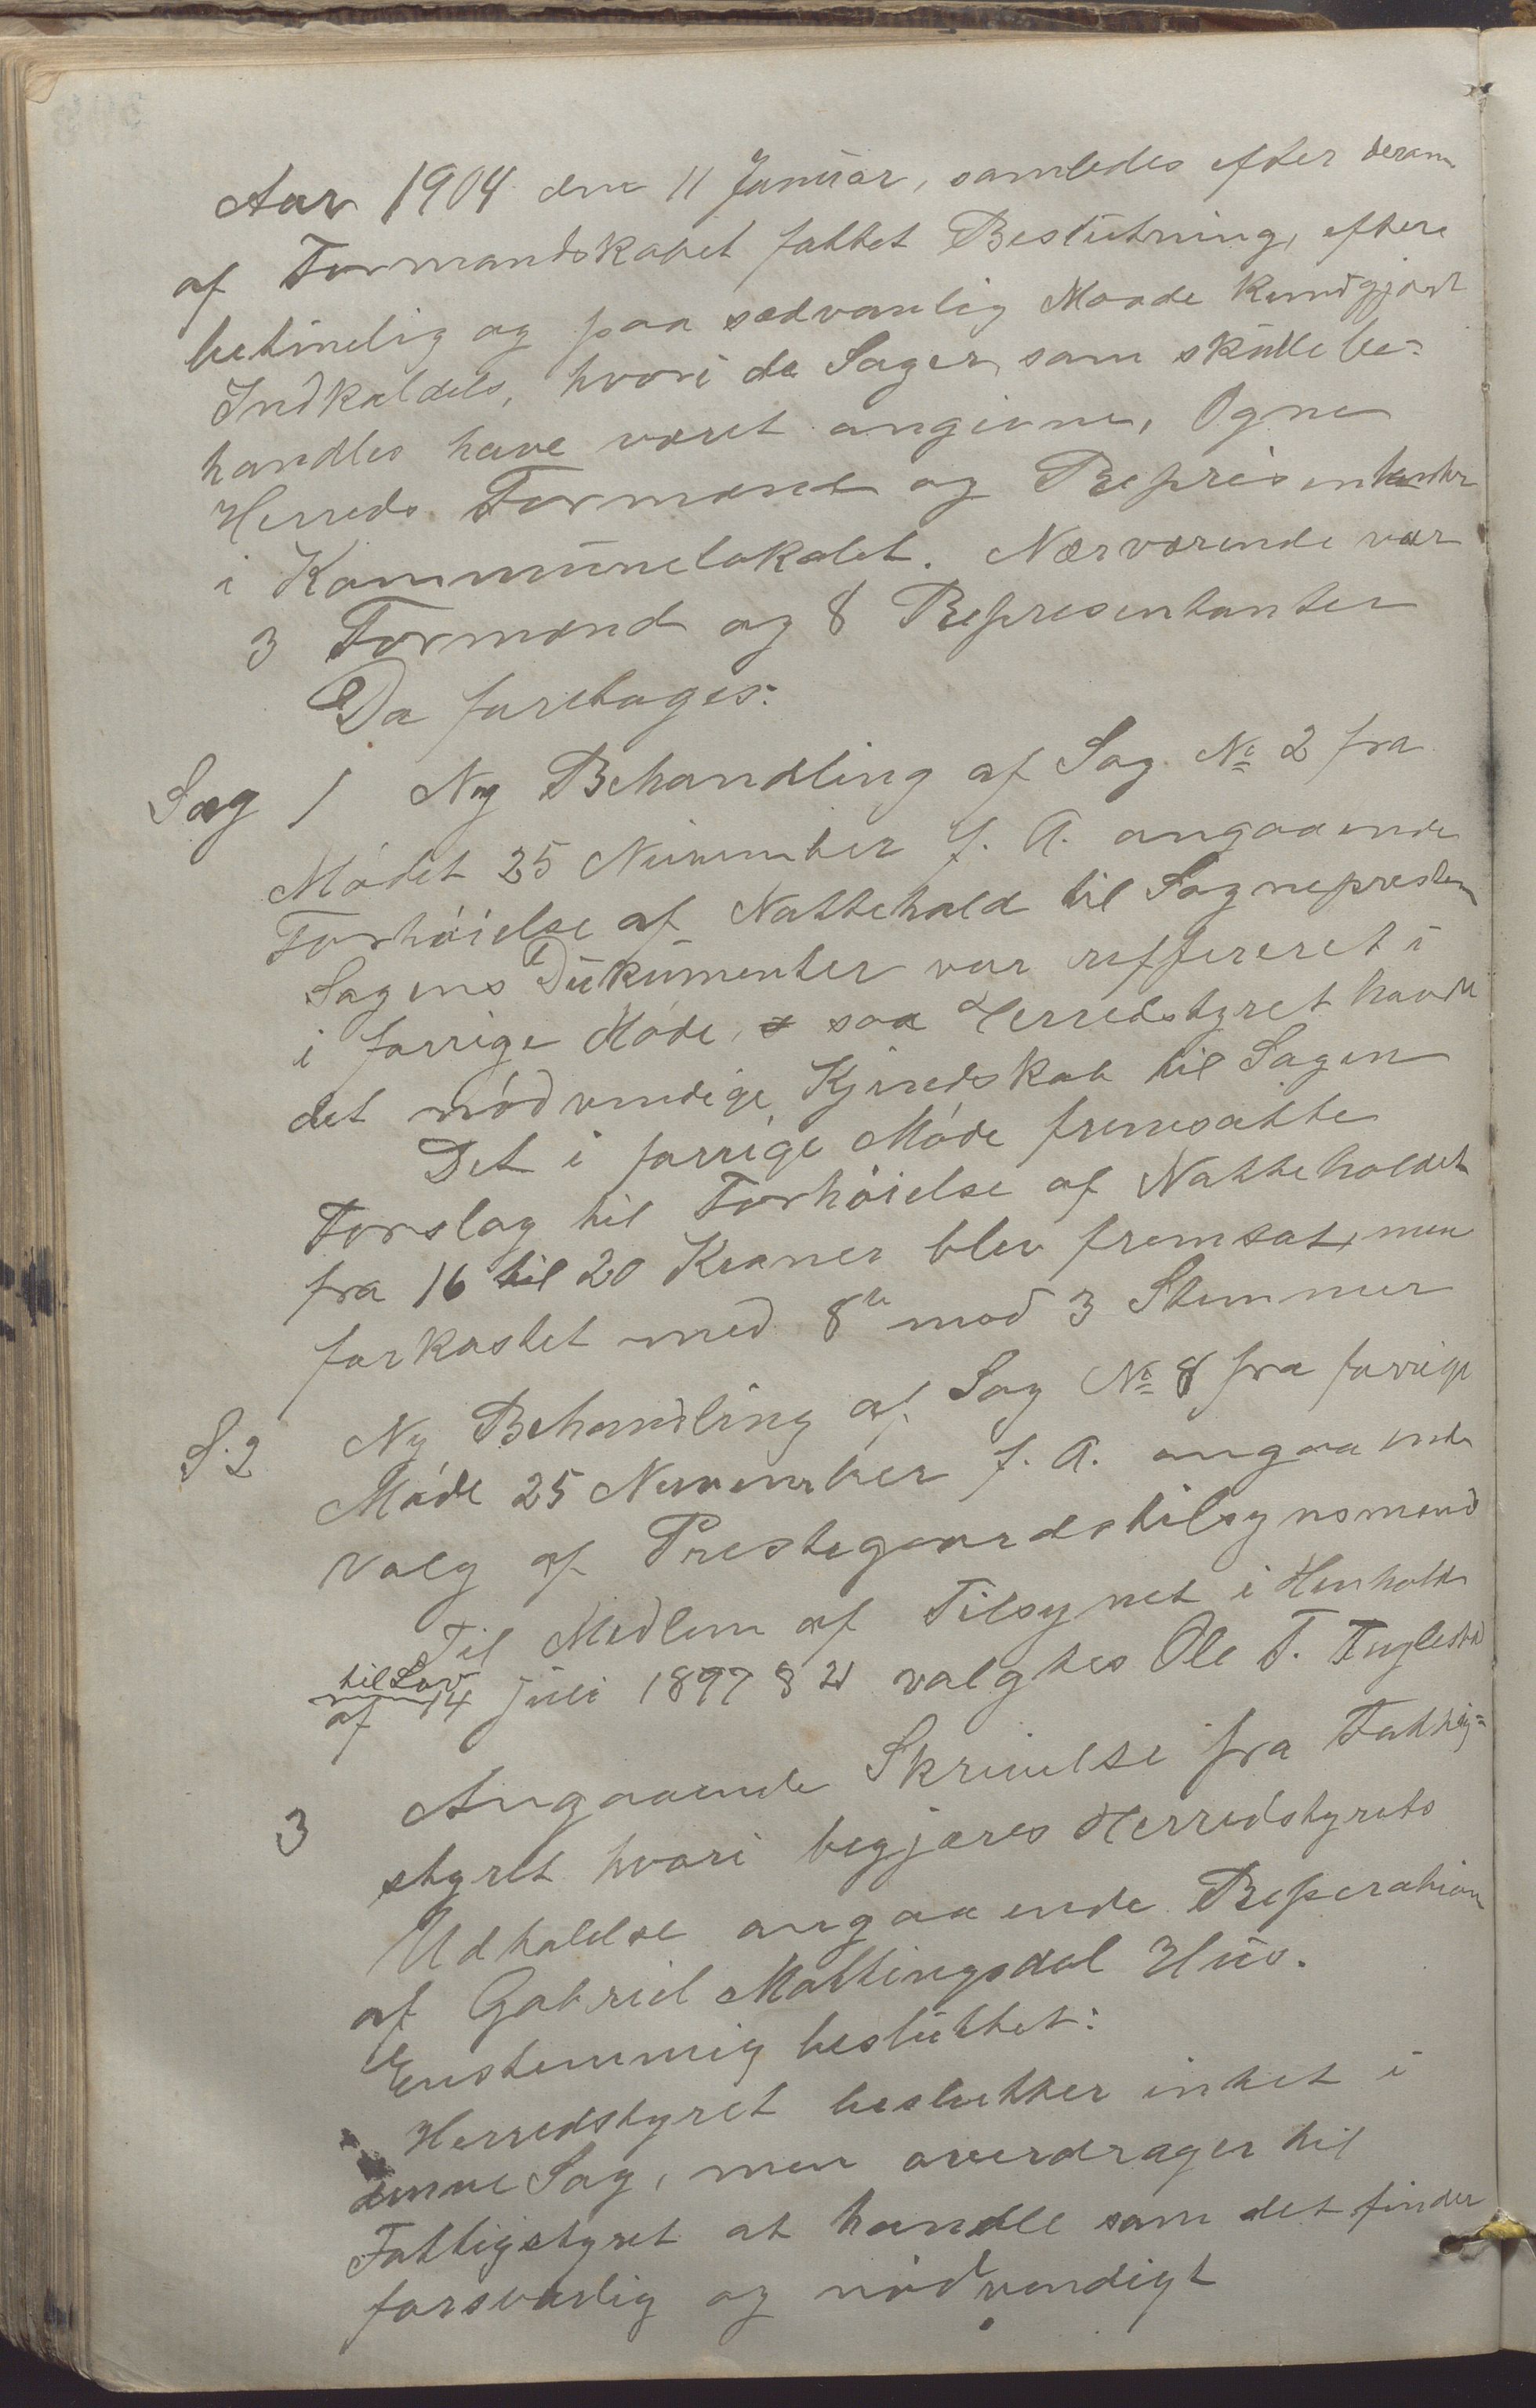 Aar 1904 den 11 Januar, samledes efter derom
af Formandskabet fattet Beslutning, efter
betimelig og paa sædvanlig Maade kundgjort
Indkaldels, hvori de Sager som skulle be-
handles have været angivne, Ogne
Herreds Formænd og Represintanter
i Kommunelokalet. Nærværende var
3 Formænd og 8 Representanter
Da foretages:
Sag 1 Ny Behandling af Sag No 2 fra
Mødet 25 November f. A. angaaende
Forhøielse af Nattehold til Sognepresten
Sagens Dukumenter var reffereret i
i forrige Møde, saa Herredstyret havde
det nødvendige Kjendskab til Sagen
Det i forrige Møde fremsatte
Forslag til Forhøielse af Natteholdet
fra 16 til 20 Kroner blev fremsat, men
forkastet med 8te mod 3 Stemmer
S. 2 Ny Behandling af Sag No 8 fra forrige
Møde 25 November f. A. angaaende
Valg af Prestegaardstilsynsmænd
Til Medlem af Tilsynet i Henhold
til Lov
af 14 juli 1897 § 21 valgtes Ole T. Fuglestad
3 Angaaende Skrivelse fra Fattig=
styret hvori begjæres Herredstyrets
Udtalelse angaaende Reperation
af Gabriel Mattingsdal Hus.
Enstemmig besluttet:
Herredstyret beslutter intet i
denne Sag, men overdrager til
Fattigstyret at handle som det finder
forsvarlig og nødvendigt